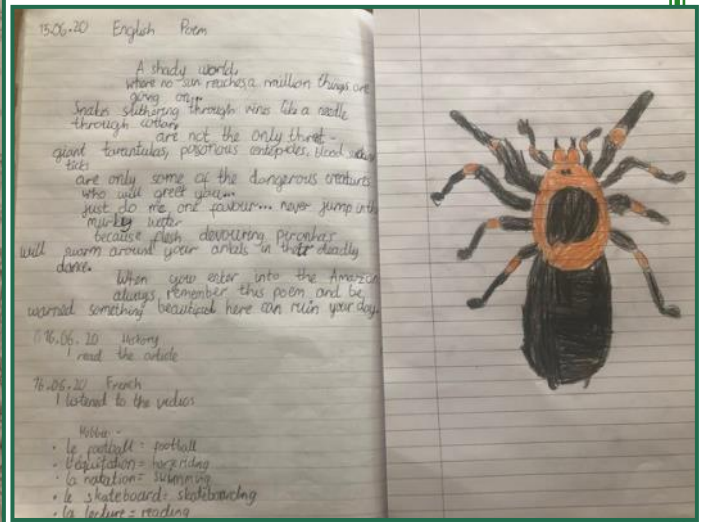 15.06.20 English Poem
A shady world,
where no sun reaches a million things are
going on...
Snakes slithering through vines like a needle
through cotton,
are not the only threat -
giant tarantulas, poisonous centipides, blood
ticks
are only some of the dangerous creatures
who will greet you...
just do me, one favour... never jump in the
murky water
because flesh devouring piranhas
will swarm around your ankals in their deadly
dance.
When you enter into the Amazon
always remember this poem and be
warned something beautiful here can ruin your day.
16.06.20 History
I read the article
16.06.20 French
I listened to the videos
Hobbies -
• le football = football
• l'équitation = horseriding
• la natation = swimming
• le skateboard = skateboarding
• la lecture = reading